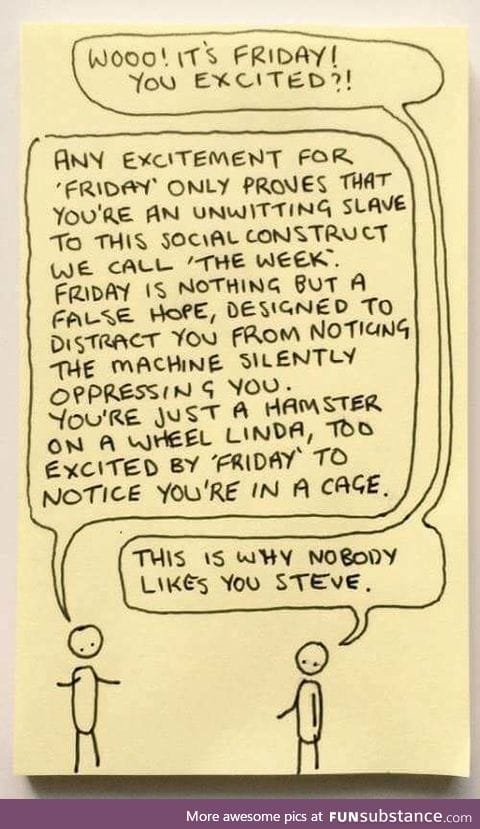 WOOO! IT'S FRIDAY!
YOU EXCITED?!
ANY EXCITEMENT FOR
'FRIDAY' ONLY PROVES THAT
YOU'RE AN UNWITTING SLAVE
TO THIS SOCIAL CONSTRUCT
WE CALL 'THE WEEK'.
FRIDAY IS NOTHING BUT A
FALSE HOPE, DESIGNED TO
DISTRACT YOU FROM NOTICING
THE MACHINE SILENTLY
OPPRESSING YOU.
YOU'RE JUST A HAMSTER
ON A WHEEL LINDA, TOO
EXCITED BY 'FRIDAY' TO
NOTICE YOU'RE IN A CAGE.
THIS IS WHY NOBODY
LIKES YOU STEVE.
More awesome pics at FUNsubstance.com